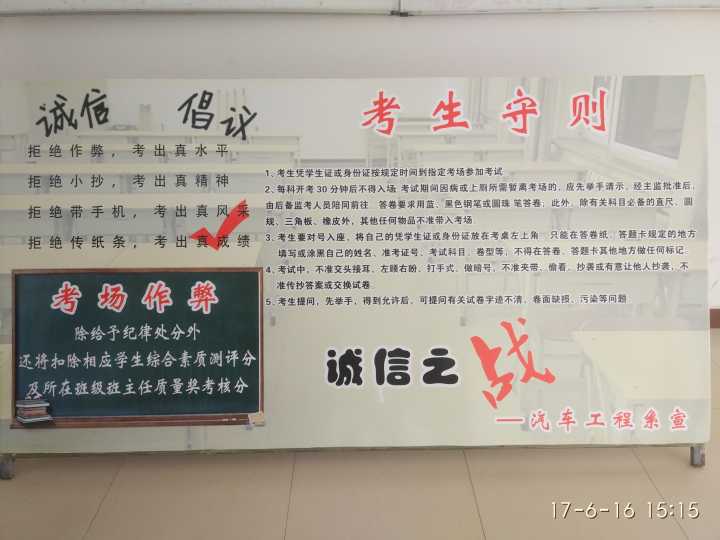 诚信 倡议
拒绝作弊，考出真水平
拒绝小抄，考出真精神
拒绝带手机，考出真风采
拒绝传纸条，考出真成绩
考场作弊
除给予纪律处分外
还将扣除相应学生综合素质测评分
及所在班级班主任质量奖考核分
考生守则
1、考生凭学生证或身份证按规定时间到指定考场参加考试
2、每科开考30分钟后不得入场 考试期间因病或上厕所需暂离考场的、应先举手请示、经主监批准后、
由后备监考人员陪同前往 答卷要求用蓝、黑色钢笔或圆珠笔答卷；此外、除有关科目必备的直尺、圆
规、三角板、橡皮外，其他任何物品不准带入考场
3、考生要对号入座、将自己的凭学生证或身份证放在考桌左上角 只能在答卷纸、答题卡规定的地方
填写或涂黑自己的姓名、准考证号、考试科目、卷型等，不得在答卷、答题卡其他地方做任何标记
4、考试中、不准交头接耳、左顾右盼、打手式、做暗号、不准夹带、偷看、抄袭或有意让他人抄袭、不
准传抄答案或交换试卷
5、考生提问，先举手，得到允许后、可提问有关试卷字迹不清、卷面缺损、污染等问题
诚信之战
—汽车工程系宣
17-6-16 15:15